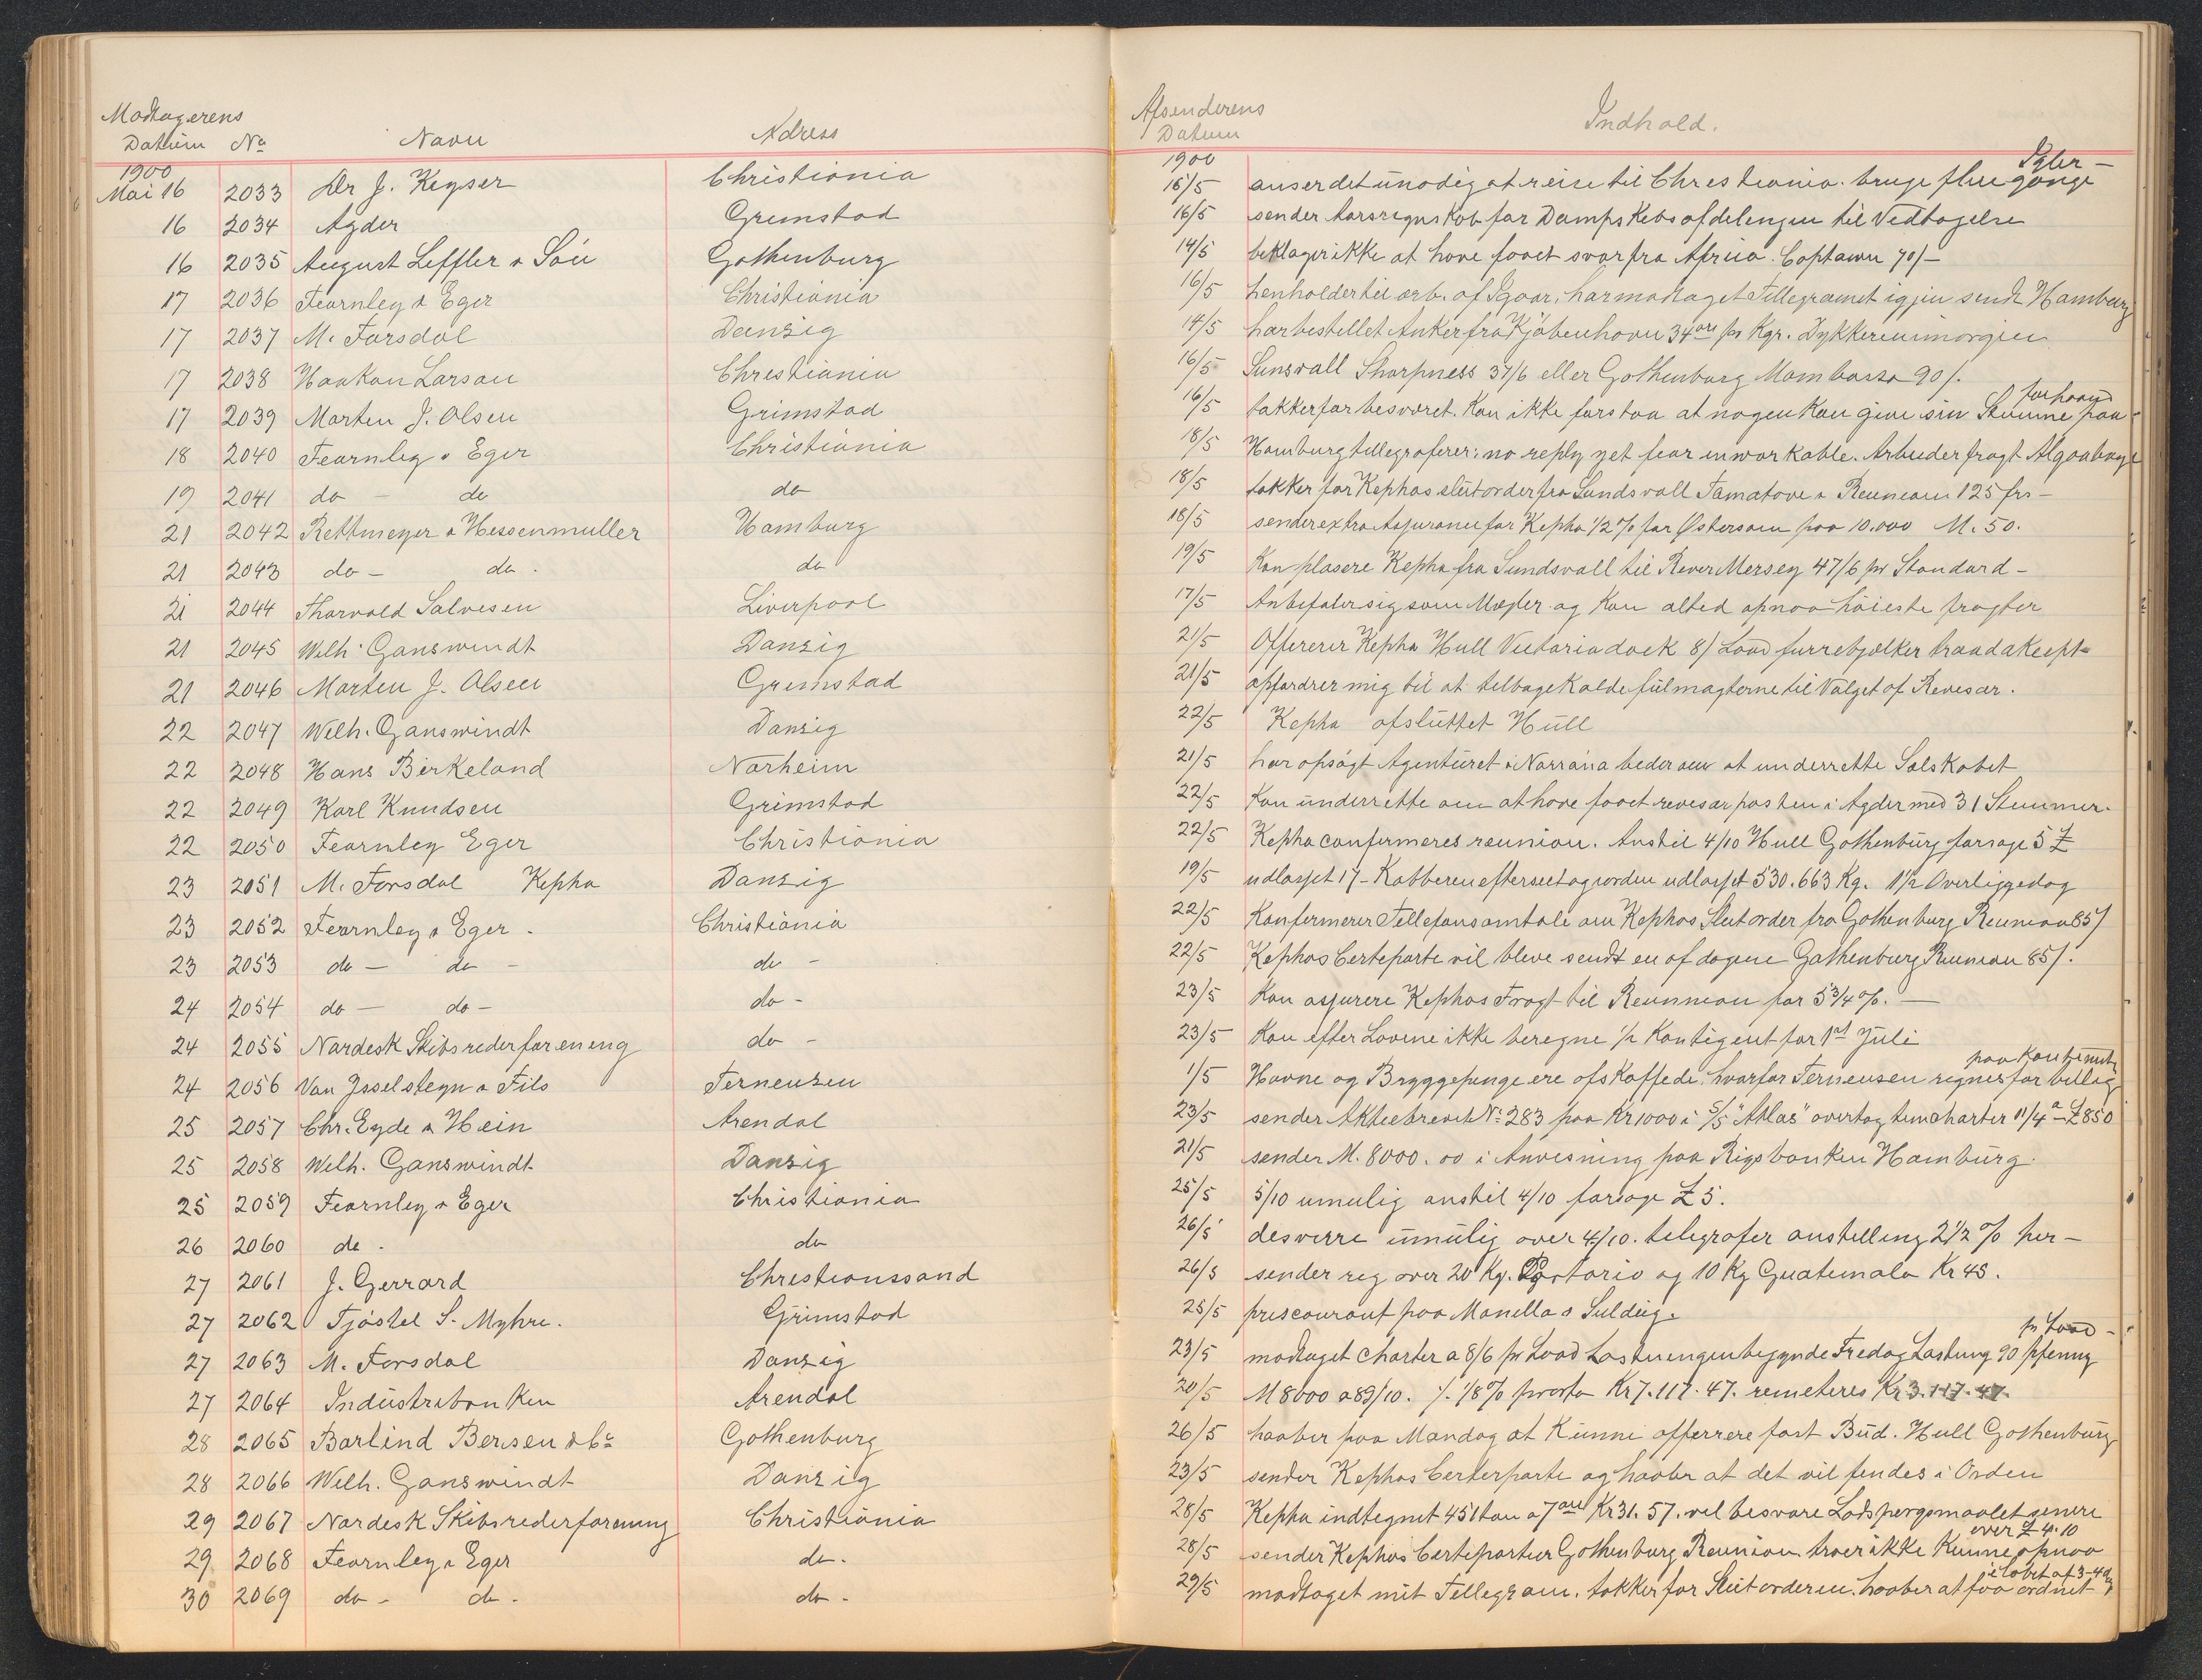 Modtagerens
Datum No Navn Adress
1900
Mai 16 2033 Dr J. Keyser Christiania
16 2034 Agder Gremstad
16 2035 August Leffler & Sön Gothenburg
17 2036 Fearnley & Eger Christiania
17 2037 M. Forsdal Danzig
17 2038 Haakon Larsen Chrestiania
17 2039 Morten J. Olsen Grimstad
18 2040 Fearnley & Eger Christiania
19 2041 do - do do
21 2042 Rettmeyer & Hessenmuller Hamburg
21 2043 do - do . do
21 2044 Thorvald Salvesen Liverpool
21 2045 Welh. Ganswindt Danzig
21 2046 Morten J. Olsen Gremstad
22 2047 Welh. Ganswindt Danzig
22 2048 Hans Birkeland Norheim
22 2049 Karl Knudsen Grimstad
22 2050 Fearnley Eger Christiania
23 2051 M. Forsdal Kepha Danzig
23 2052 Fearnley & Eger . Christiania
23 2053 do - do - do -
24 2054 do - do - do -
24 2055 Nordesk Skibsrederforeneng do -
24 2056 Van Ysselsteyn & Fils Terneuzen
25 2057 Chr. Eyde & Hein Arendal
25 2058 Welh. Ganswindt Danzig
25 2059 Fearnley & Eger Christiania
26 2060 do . do
27 2061 J. Gerrard Chrestianssand
27 2062 Tjöstel S. Myhre. Grimstad
27 2063 M. Forsdal Danzig
27 2064 Industribanken Arendal
28 2065 Barlind Bersen & Co Gothenburg
28 2066 Welh. Ganswindt Danzig
29 2067 Nordesk Skibsrederforening Christiania
29 2068 Fearnley & Eger do.
30 2069 do - do . do -
Afsenderens
Datum Indhold.
1900
15/5 anser det unodig at reise til Chrestiania. bruge flere gange
16/5 sender Aarsregnskab for Dampskibsafdelengen til Vedtagelse
14/5 beklager ikke at have faaet svar fra Africa. Captawn 70/-
16/5 henholder til arb. af Igaar, har modtaget Tellegramet igjen sendt Hamburg
14/5 har bestellet Anker fra Kjöbenhavn 34 øre pr Kgr. Dykkeren imorgen
16/5 Sunsvall Sharpness 37/6 eller Gothenburg Mombassa 90/.
16/5 takker for besværet. Kan ikke forstaa at nogen kan give sin Stemme paa forhaand
18/5 Hamburg tellegraferer: no reply yet fear unworkable. Arbeider fragt Algoabaye
18/5 takker for Kephas slutorder fra Sundsvall Tamatove & Reuneon 125 frs -
18/5 sender extra Assurance for Kepha 1/2 % for Østersøen paa 10.000 M. 50.
19/5 Kan plasere Kepha fra Sundsvall til River Mersey 47/6 pr Standard -
17/5 Anbefaler sig som Mægler og kan altid opnaa höieste fragter
21/5 Offererer Kepha Hull Victoria dock 8/ Load furrebjelker traad akcept
21/5 opfordrer mig til at telbagekalde fulmagterne til Valget af Revesor.
22/5 Kepha afsluttet Hull
21/5 har opsögt Agenturet i Norrøna beder om at underrette Selskabet
22/5 Kan underrette om at have faaet revesorposten i Agder med 31 Stemmer.
22/5 Kepha confermeres reunion. Anstil 4/10 Hull Gothenburg forsøge 5 £
19/5 udlosset 17 - Kobberen efterseet og vorden udlosset 530.663 Kg. 1 1/2 Overliggedag
22/5 Konfermerer Tellefonsamtale om Kephas Slutorder fra Gothenburg Reunion 85/
22/5 Kephas Certeparte vil bleve sendt en af dagene Gothenburg Reunion 85/.
23/5 Kan assurere Kephas Fragt til Reunion for 5 3/4 %. -
23/5 Kan efter Lovene ikke beregne 1/2 Kontigent for 1st Juli
1/5 Havne og Bryggepenge ere afskaffede, hvorfor Terneusen regnes for bellig
23/5 sender Aktiebrevet No 283 paa Kr 1000 i S/S "Atlas" overtog timecharter 11/4 a £850
21/5 sender M. 8000.00 i Anvisning paa Rigsbanken Hamburg.
25/5 5/10 umulig anstil 4/10 forsøge £ 5.
26/5 desverre umulig over 4/10. telegrafer anstelling 2 1/2 % her -
26/5 sender reg over 20 Kg. Portorico og 10 Kg Guatemala Kr 45.
25/5 priscourant paa Manella & Suldeig.
23/5 modtaget Charter a 8/6 pr Load Lastnengen begynde Fredag Lastning 90 pfennig pr Load -
20/5 M 8000 a 89/10. /. 1/8 % porto Kr 7.117.47. remeteres Kr 3.117.47.
26/5 haaber paa Mandag at kunne offerere fast Bud. Hull Gothenburg
23/5 sender Kephas Certerparte og haaber at det vil fendes i Orden
28/5 Kepha indtegnet 451 ton a 7 øre Kr 31.57. vel besvare Lodspørgsmaalet senere
28/5 sender Kephas Certepartier Gothenburg Reunion. troer ikke kunne opnaa over £ 4.10
29/5 modtaget mit Tellegram. takker for Slutorderen. haaber at faa ordnet i løbet af 3-4 dg